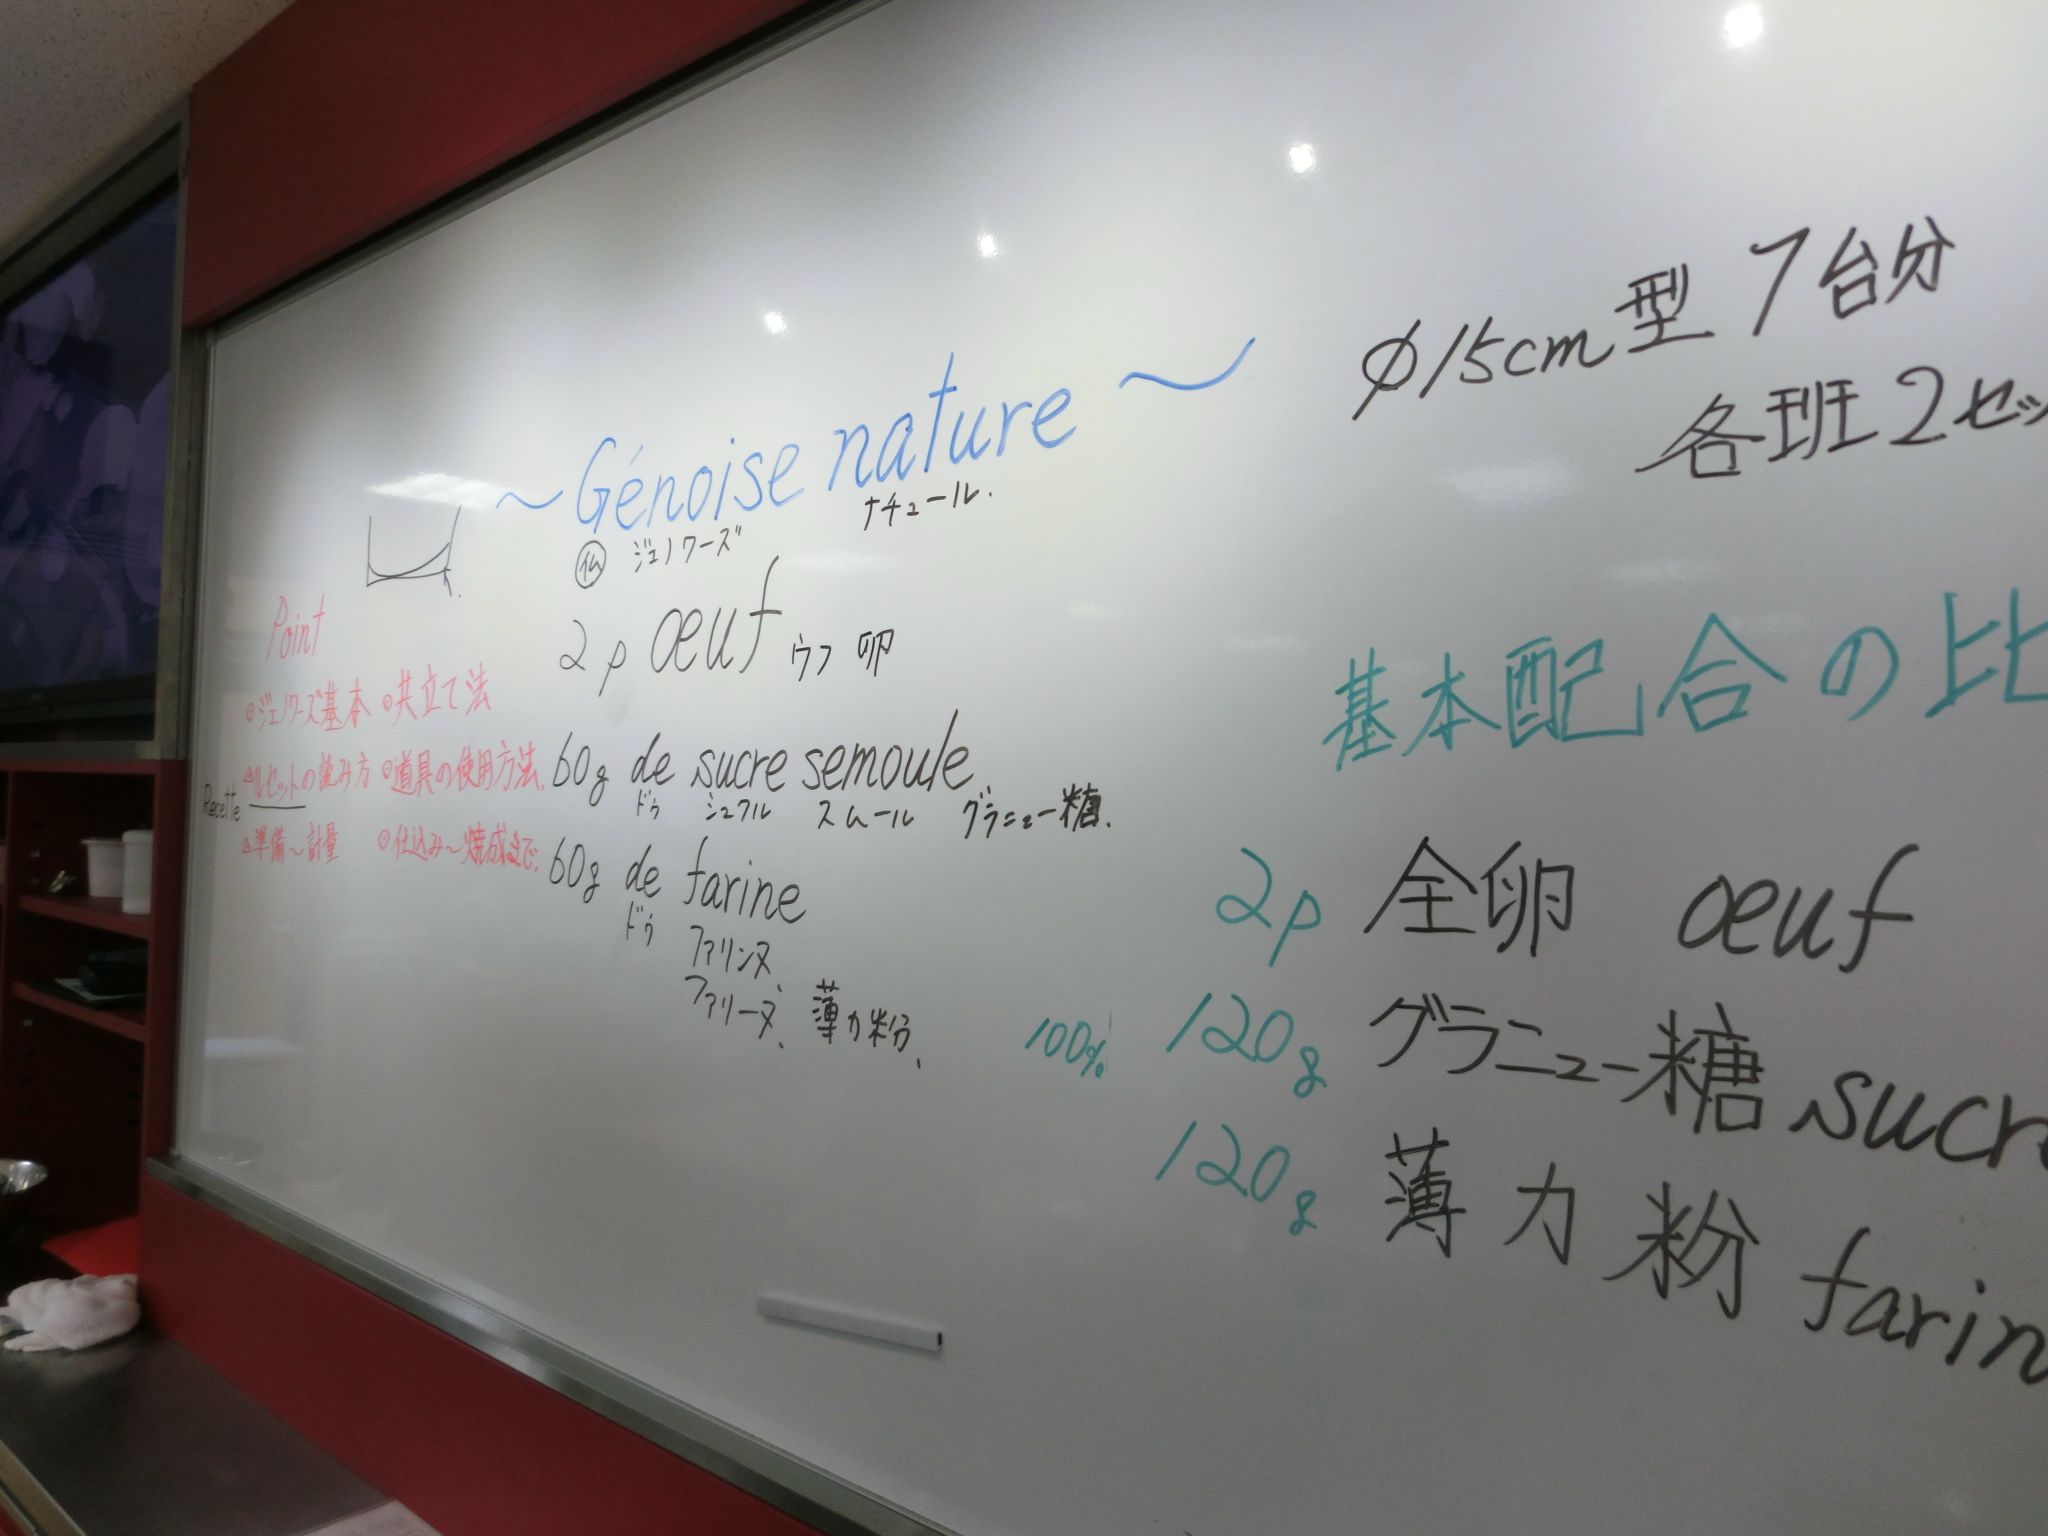 ~Génoise nature~
仏 ジェノワーズ ナチュール.
2p œuf ウフ 卵
60g de sucre semoule
ドゥ シュクル スムール グラニュー糖.
60g de farine
ドゥ ファリンヌ
ファリーヌ、薄力粉、
Point
◎ジェノワーズ基本 ◎共立て法
△ルセットの読み方 ◎道具の使用方法.
Recette
△準備～計量 ◎仕込み～焼成まで.
φ15cm型 7台分
各班2セッ
基本配合の比
2p 全卵 œuf
100% 120g グラニュー糖 sucre
120g 薄力粉 farin